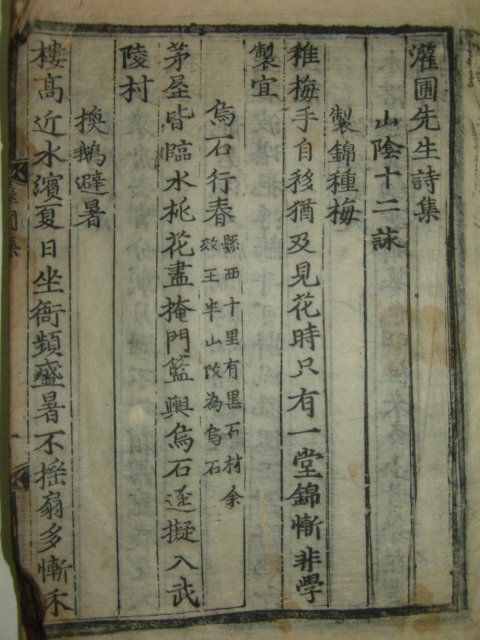 灌圃先生詩集
山陰十二詠
製錦種梅
稚梅手自移猶及見花時只有一堂錦慚非學
製宜
烏石行春
縣西十里有黑石村余
效王半山改為烏石
茅屋皆臨水桃花盡掩門籃輿烏石逕擬入武
陵村
換鵝避暑
樓高近水濱夏日坐衙頻盛暑不搖扇多慚禾